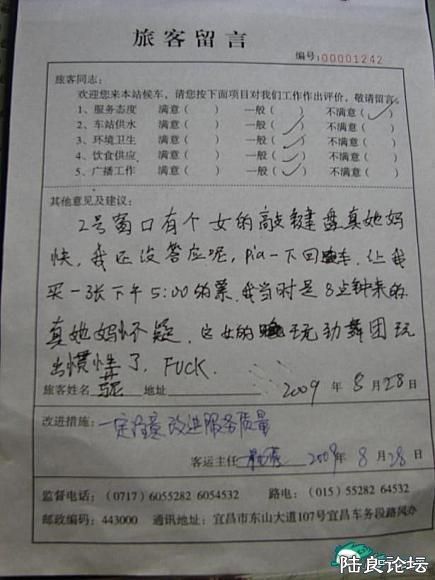 旅客留言
编号:00001242
旅客同志:
欢迎您来本站候车,请您按下面项目对我们工作作出评价,敬请留言。
1、服务态度 满意( ) 一般( ) 不满意(✓)
2、车站供水 满意( ) 一般(✓) 不满意( )
3、环境卫生 满意( ) 一般(✓) 不满意( )
4、饮食供应 满意( ) 一般(✓) 不满意( )
5、广播工作 满意( ) 一般(✓) 不满意( )
其他意见及建议:
2号窗口有个女的敲键盘真她妈
快,我还没答应呢,Pia一下回车,让我
买一张下午5:00的票,我当时是8点钟来的
真她妈怀疑,这女的 玩劲舞团玩
出惯性了,FUCK.
旅客姓名 地址 2009年8月28日
改进措施:一定注意改进服务质量
客运主任 2009年8月28日
监督电话:(0717)6055282 6054532 路电:(015)55282 64532
邮政编码:443000 通讯地址:宜昌市东山大道107号宜昌车务段路风办
陆良论坛